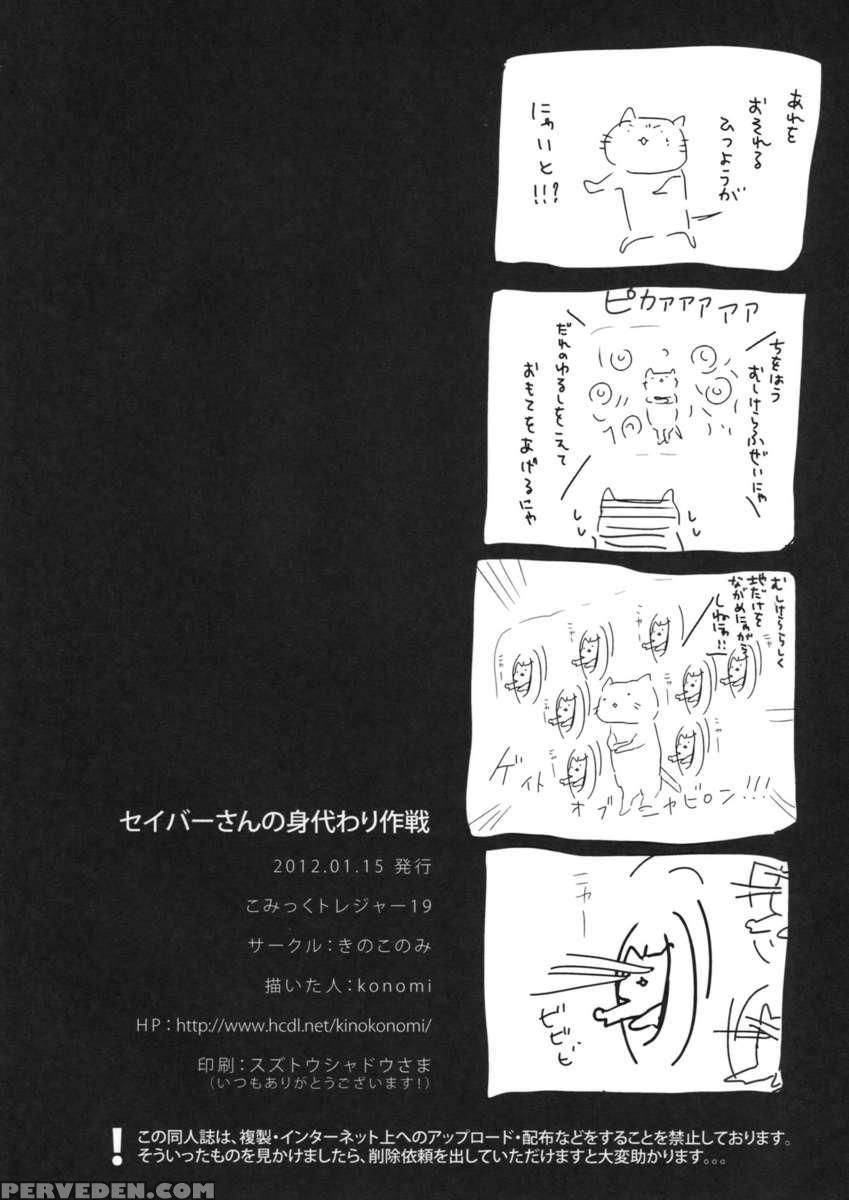 あれを
おそれる
ひつようが
にゃいと!!!?
ピカァァァァァ
ちをはう
むしけらふぜいにゃ
だれのゆるしをえて
おもてをあげるにゃ
むしけららしく
地だけを
ながめにゃがら
しねにゃ!!
ニャー
ゲイト
オブ
ニャビロン!!!
ニャー
ビビビ
セイバーさんの身代わり作戦
2012.01.15 発行
こみっくトレジャー19
サークル:きのこのみ
描いた人:konomi
HP:http://www.hcdl.net/kinokonomi/
印刷:スズトウシャドウさま
(いつもありがとうございます!)
! この同人誌は、複製・インターネット上へのアップロード・配布などをすることを禁止しております。
そういったものを見かけましたら、削除依頼を出していただけますと大変助かります。。。
PERVEDEN.COM